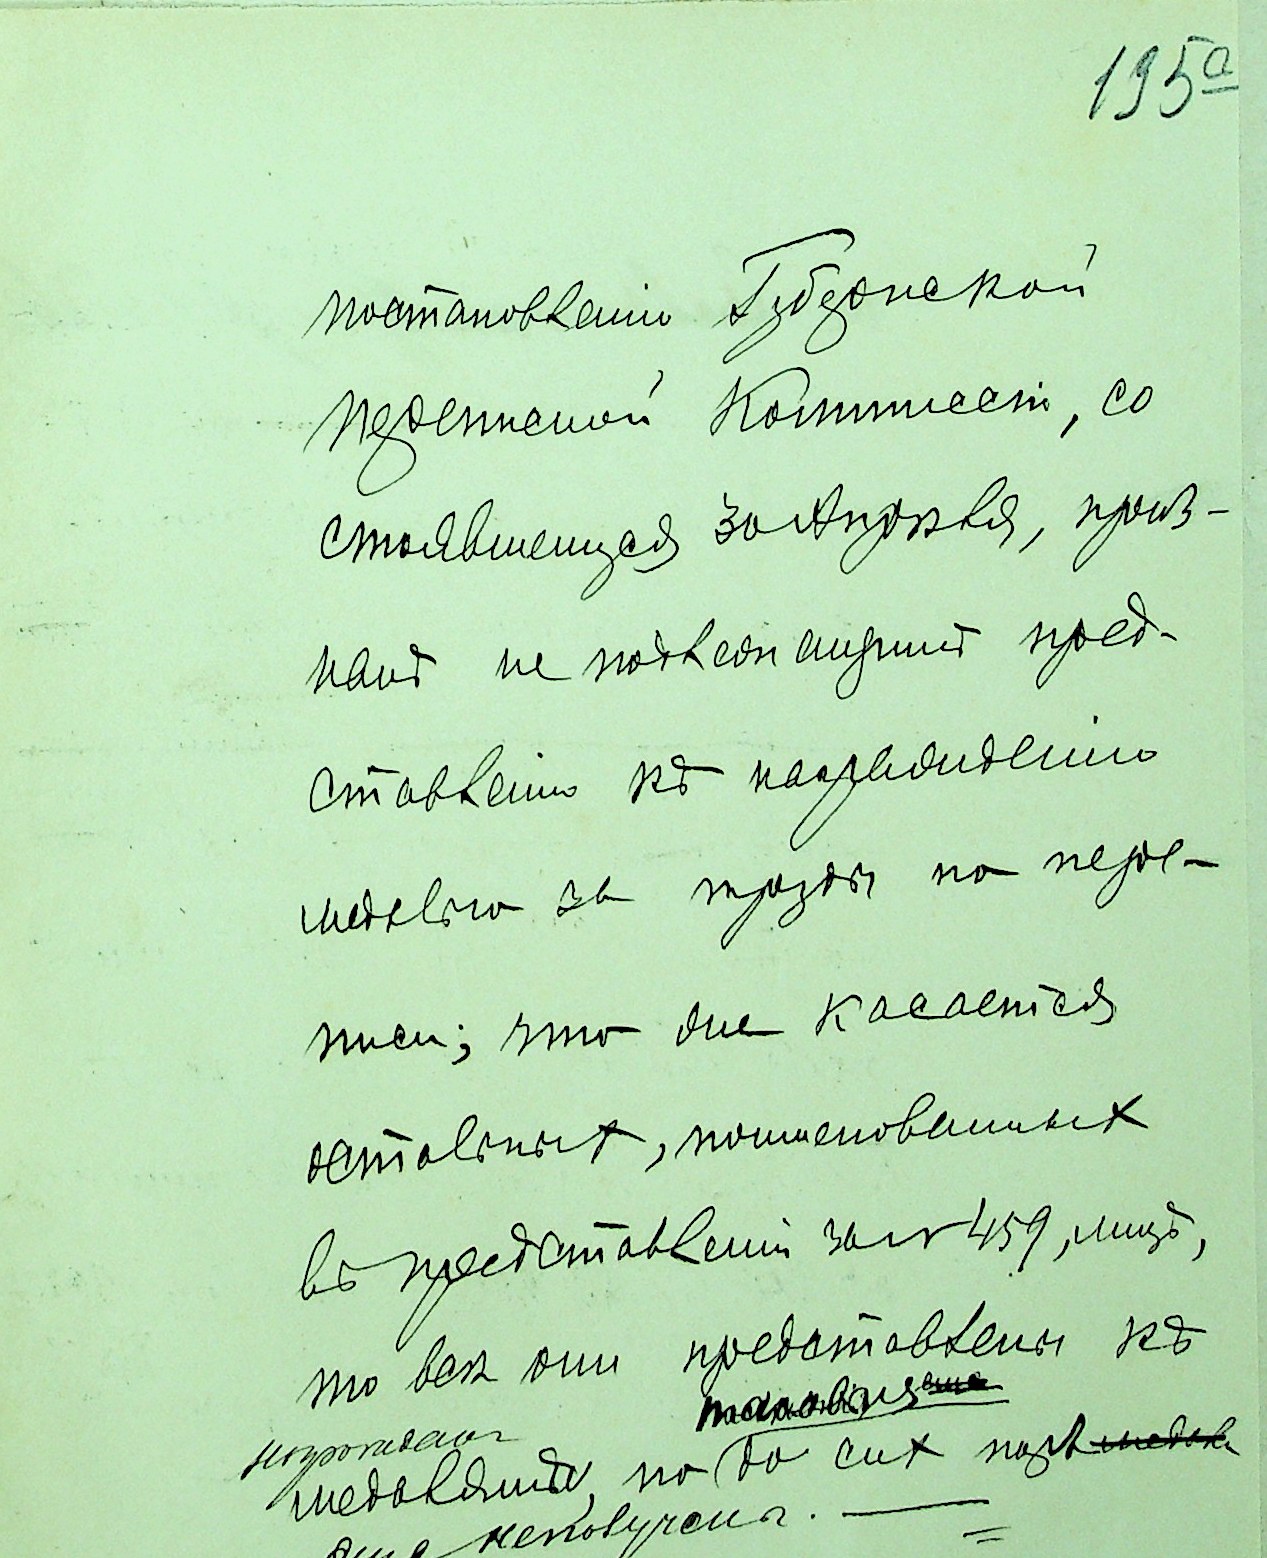 195а
постановленію Губернской
переписной Коммиссіи, со
стоявшемуся 30 Апрѣля, приз-
наны не подлежащими пред-
ставленію къ награжденію
медалью за труды по пере-
писи; что же касается
остальных, поименованных
въ представленіи за № 459, лицъ,
то всѣ они представлены къ
таковыя
награжденію
медалями, но до сих поръ
еще не получены.